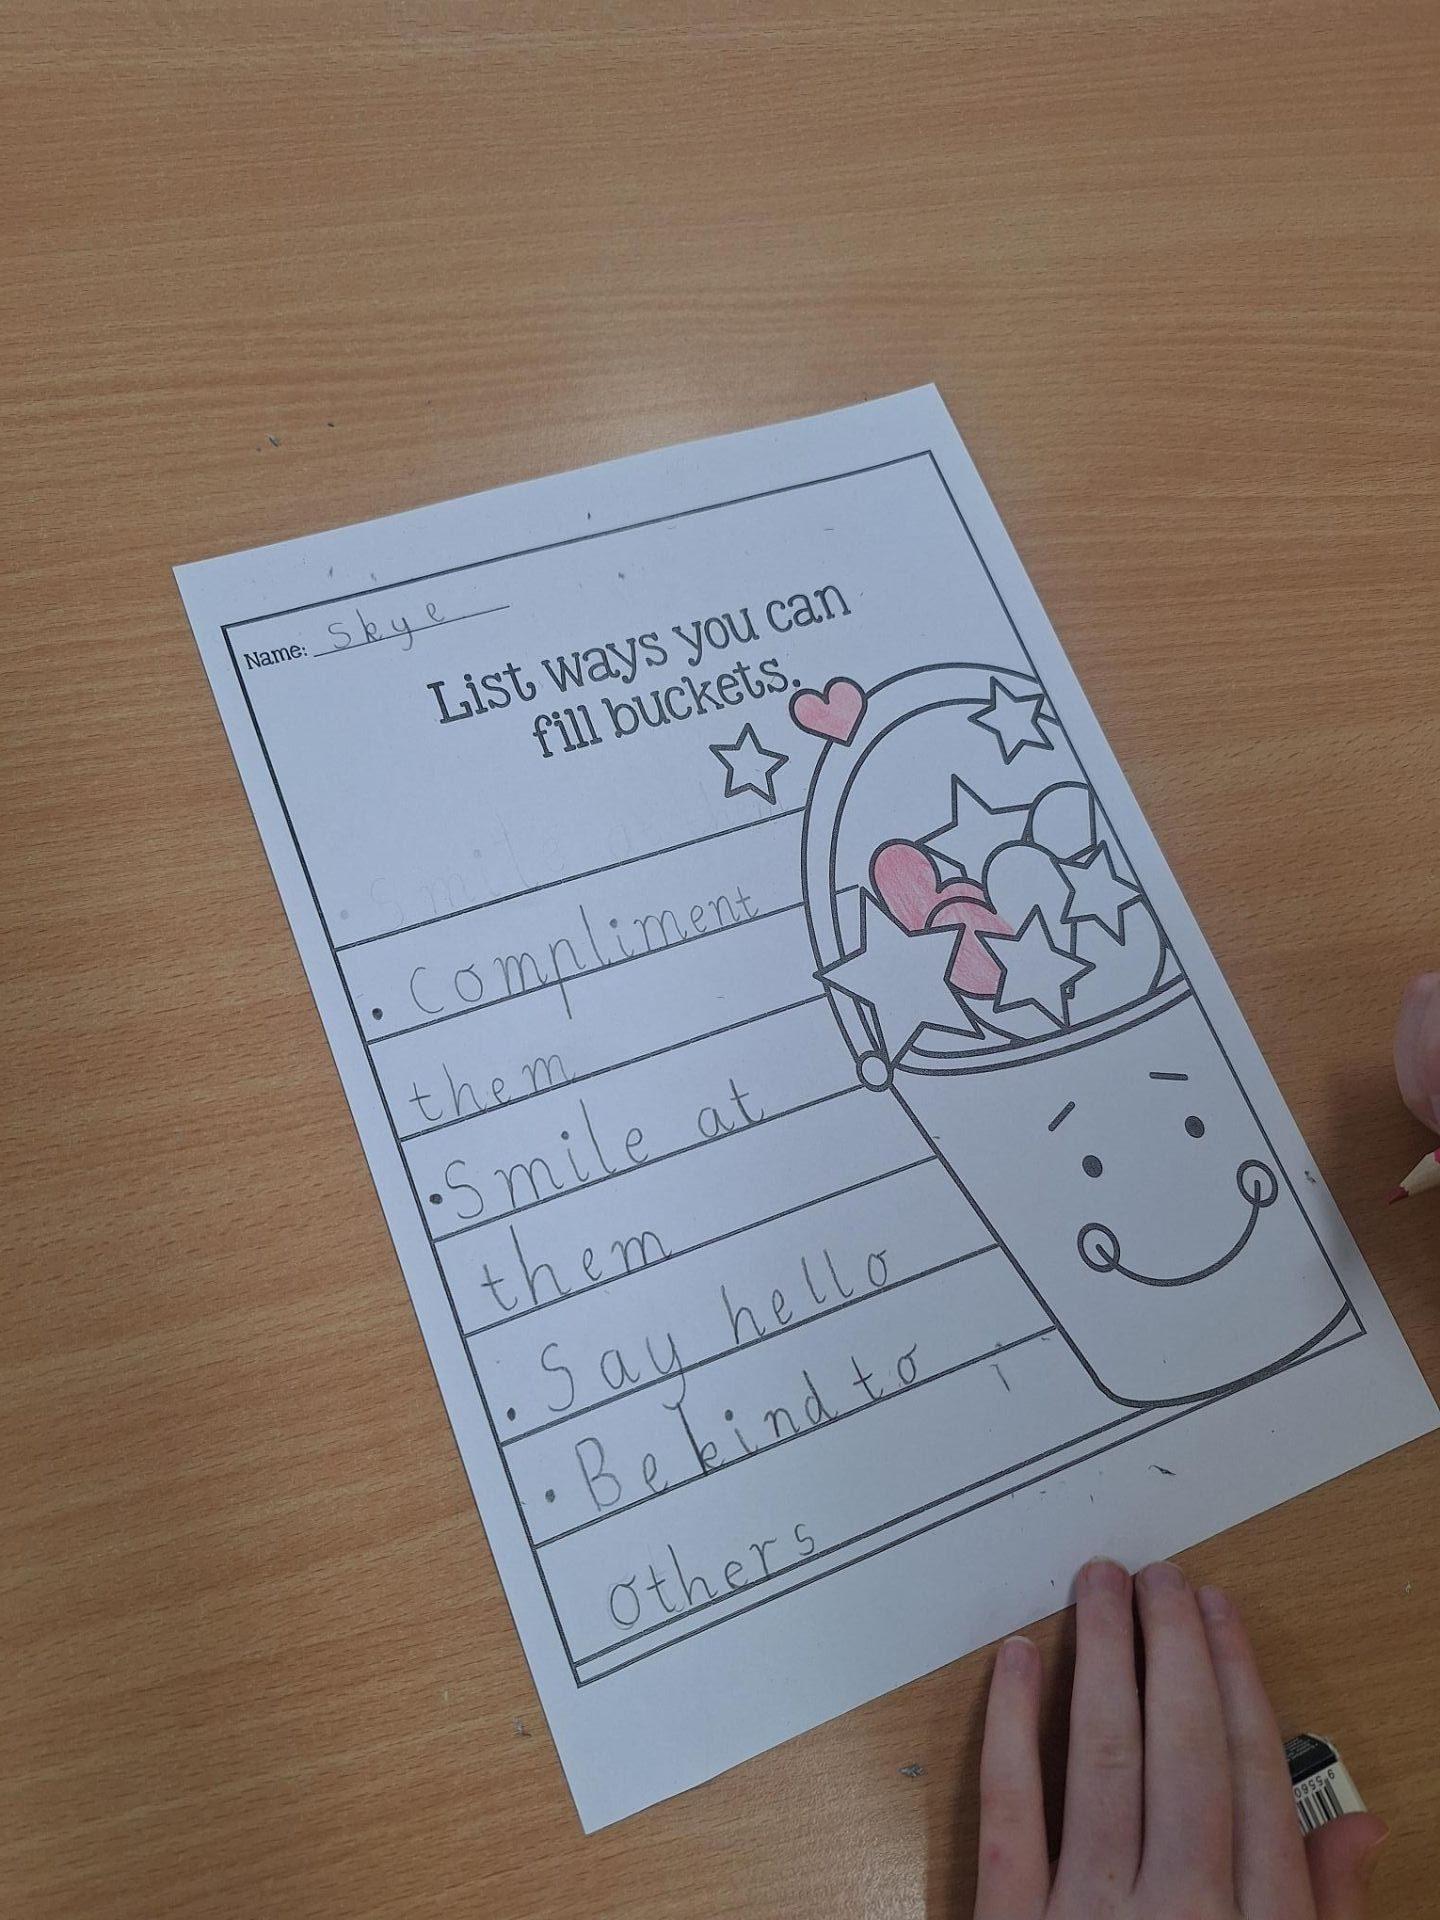 Name: Skye
List ways you can
fill buckets.
• Smile at
• Compliment
them
• Smile at
them
• Say hello
• Be kind to
others
95560